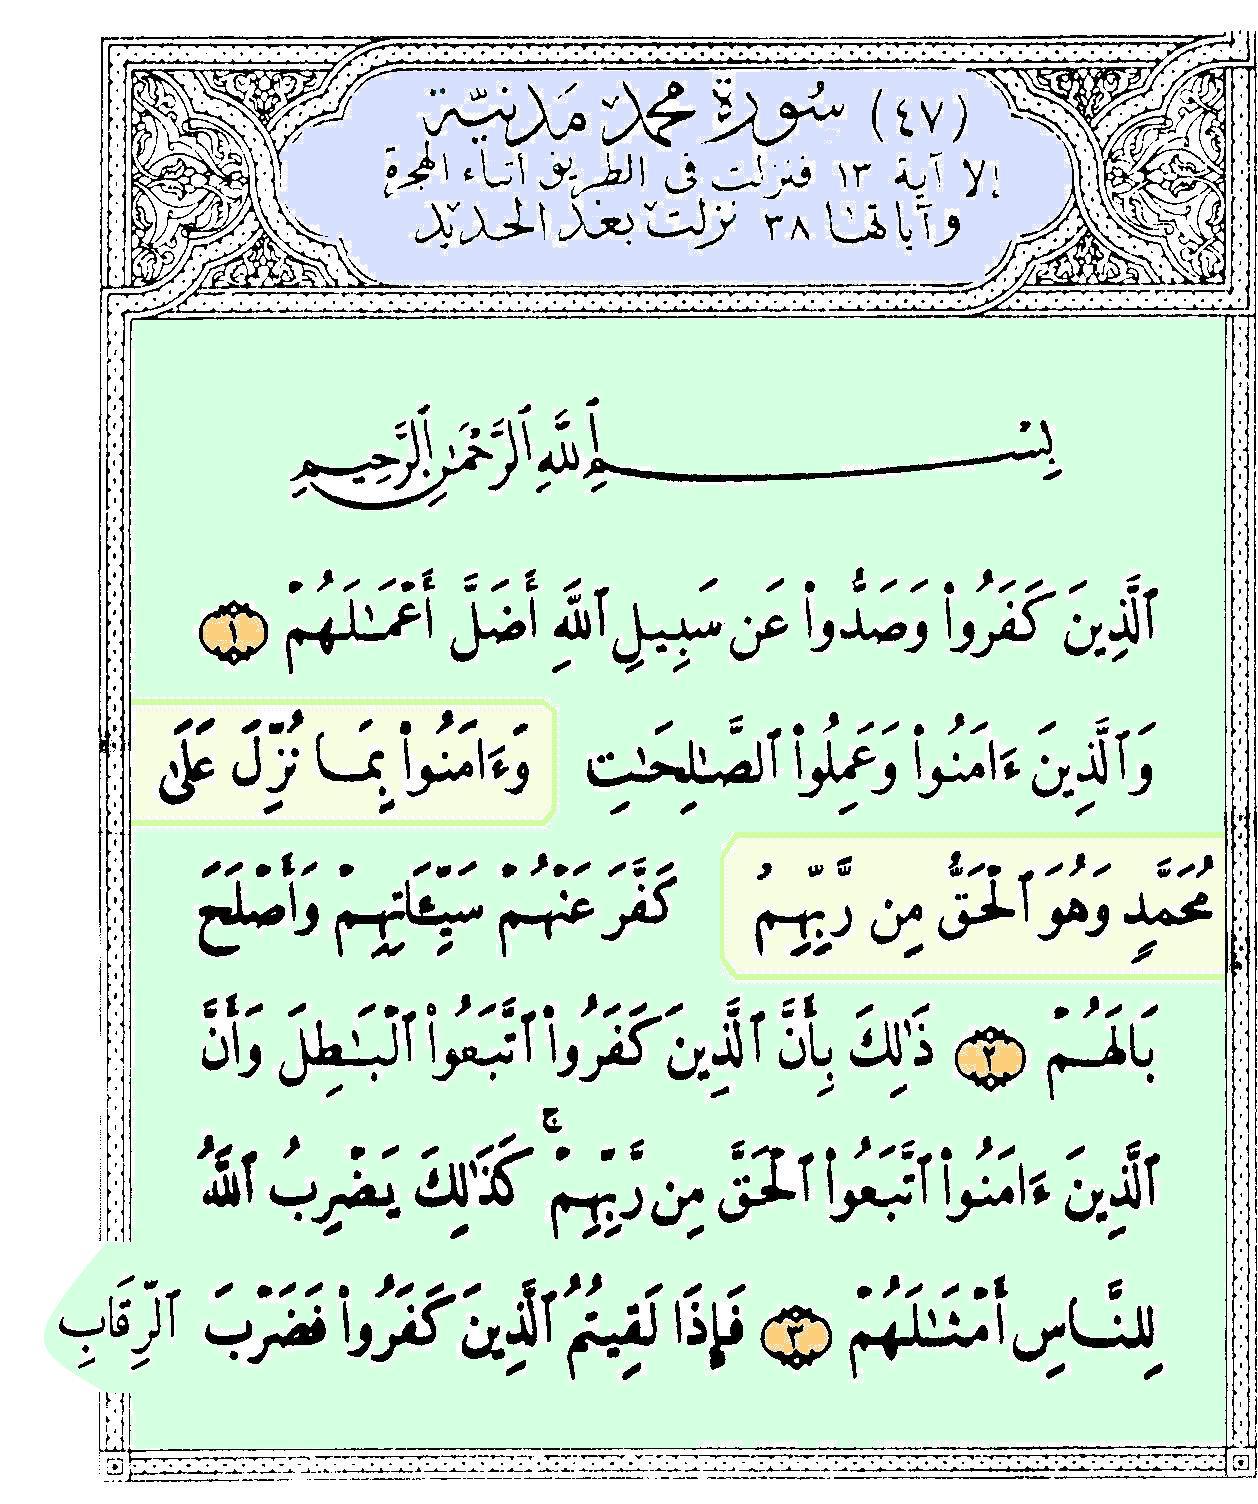 (٤٧) سُورَة محمد مَدَنيّة
إلا آية ١٣ فنزلت فى الطريق اثناء الهجرة
وآياتها ٣٨ نزلت بعد الحديد
بِسْمِ ٱللَّهِ ٱلرَّحْمَٰنِ ٱلرَّحِيمِ
ٱلَّذِينَ كَفَرُوا۟ وَصَدُّوا۟ عَن سَبِيلِ ٱللَّهِ أَضَلَّ أَعْمَٰلَهُمْ ١
وَٱلَّذِينَ ءَامَنُوا۟ وَعَمِلُوا۟ ٱلصَّٰلِحَٰتِ وَءَامَنُوا۟ بِمَا نُزِّلَ عَلَىٰ
مُحَمَّدٍ وَهُوَ ٱلْحَقُّ مِن رَّبِّهِمْ كَفَّرَ عَنْهُمْ سَيِّـَٔاتِهِمْ وَأَصْلَحَ
بَالَهُمْ ٢ ذَٰلِكَ بِأَنَّ ٱلَّذِينَ كَفَرُوا۟ ٱتَّبَعُوا۟ ٱلْبَٰطِلَ وَأَنَّ
ٱلَّذِينَ ءَامَنُوا۟ ٱتَّبَعُوا۟ ٱلْحَقَّ مِن رَّبِّهِمْ ۚ كَذَٰلِكَ يَضْرِبُ ٱللَّهُ
لِلنَّاسِ أَمْثَٰلَهُمْ ٣ فَإِذَا لَقِيتُمُ ٱلَّذِينَ كَفَرُوا۟ فَضَرْبَ ٱلرِّقَابِ